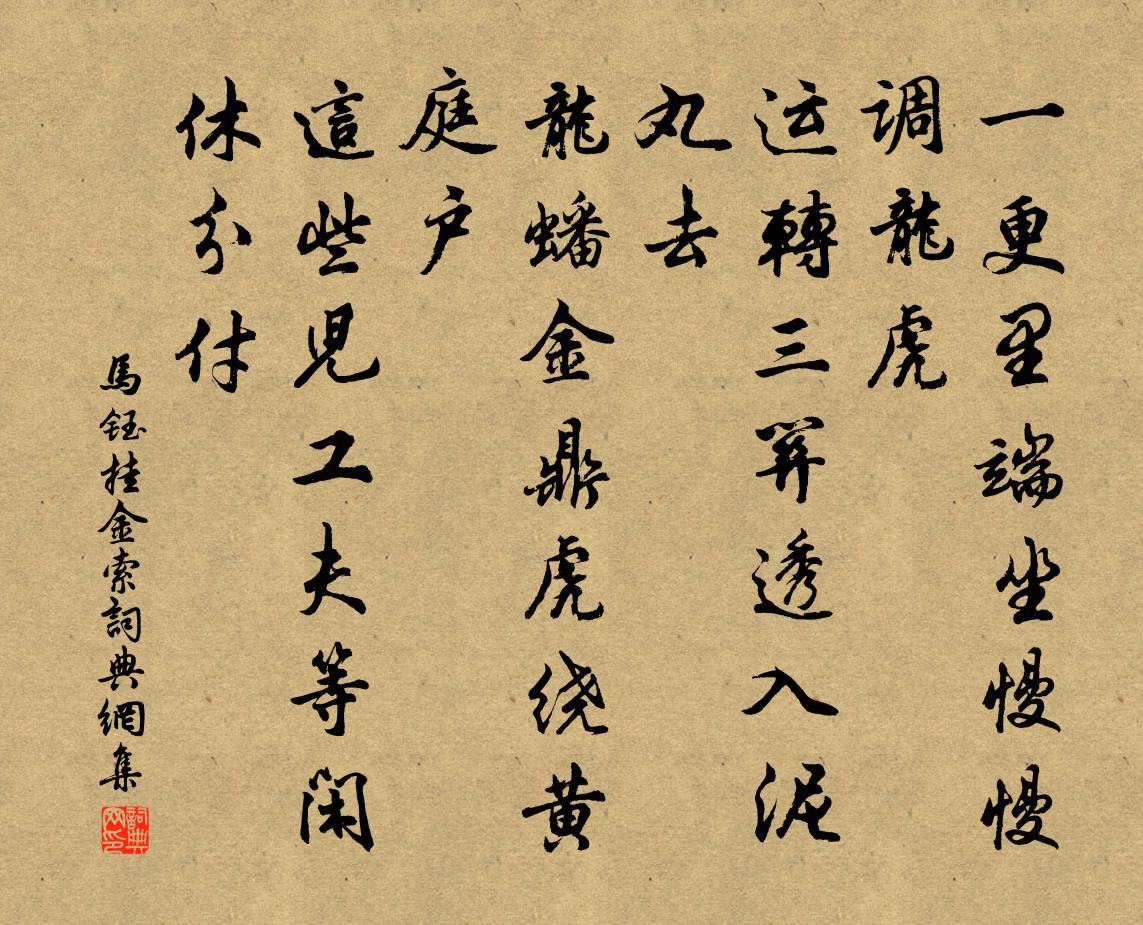 一更里端坐慢慢
调龍虎
运轉三關透入泥
丸去
龍蟠金鼎虎绕黄
庭户
這些兒工夫等闲
休分付
馬钰挂金索詞典網集
詞典网印